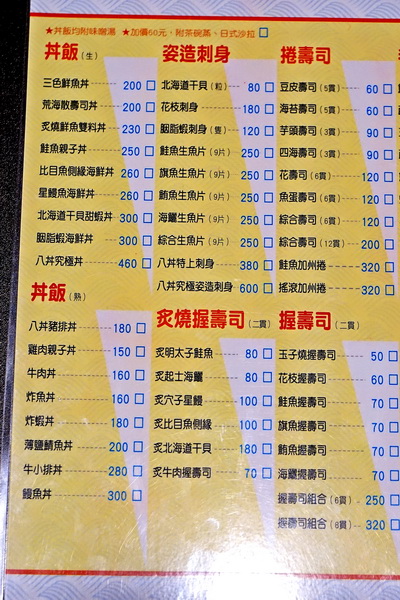 ★丼飯均附味噌湯 ★加價50元、附茶碗蒸、日式沙拉 □
丼飯(生)
三色鮮魚丼 200 □
荒海散壽司丼 200 □
炙燒鮮魚雙料丼 230 □
鮭魚親子丼 250 □
比目魚側緣海鮮丼 260 □
星鰻魚海鮮丼 260 □
北海道干貝甜蝦丼 300 □
胭脂蝦海鮮丼 300 □
八丼究極丼 460 □
丼飯(熟)
八丼豬排丼 180 □
雞肉親子丼 150 □
牛肉丼 160 □
炸魚丼 160 □
炸蝦丼 180 □
薄鹽鯖魚丼 200 □
牛小排丼 280 □
鰻魚丼 300 □
姿造刺身
北海道干貝(粒) 80 □
花枝刺身 180 □
胭脂蝦刺身(隻) 120 □
鮭魚生魚片(9片) 250 □
旗魚生魚片(9片) 250 □
鮪魚生魚片(9片) 250 □
海鱺生魚片(9片) 250 □
綜合生魚片(9片) 250 □
八丼特上刺身 380 □
八丼究極姿造刺身 600 □
炙燒握壽司(二貫)
炙明太子鮭魚 80 □
炙起士海鱺 80 □
炙穴子星鰻 100 □
炙比目魚側緣 100 □
炙北海道干貝 180 □
炙牛肉握壽司 70 □
捲壽司
豆皮壽司(5貫) 60 □
海苔壽司(5貫) 60 □
芋頭壽司(3貫) 90
四海壽司(3貫) 90 □
花壽司(6貫) 120 □
魚蛋壽司(6貫) 120 □
綜合壽司(6貫) 120 □
綜合壽司(12貫) 200 □
鮭魚加州捲 320 □
搖滾加州捲 320 □
握壽司(二貫)
玉子燒握壽司 50 □
花枝握壽司 60 □
鮭魚握壽司 70 □
旗魚握壽司 70 □
鮪魚握壽司 70 □
海鱺握壽司 70 □
握壽司組合(6貫) 250 □
握壽司組合(8貫) 320 □